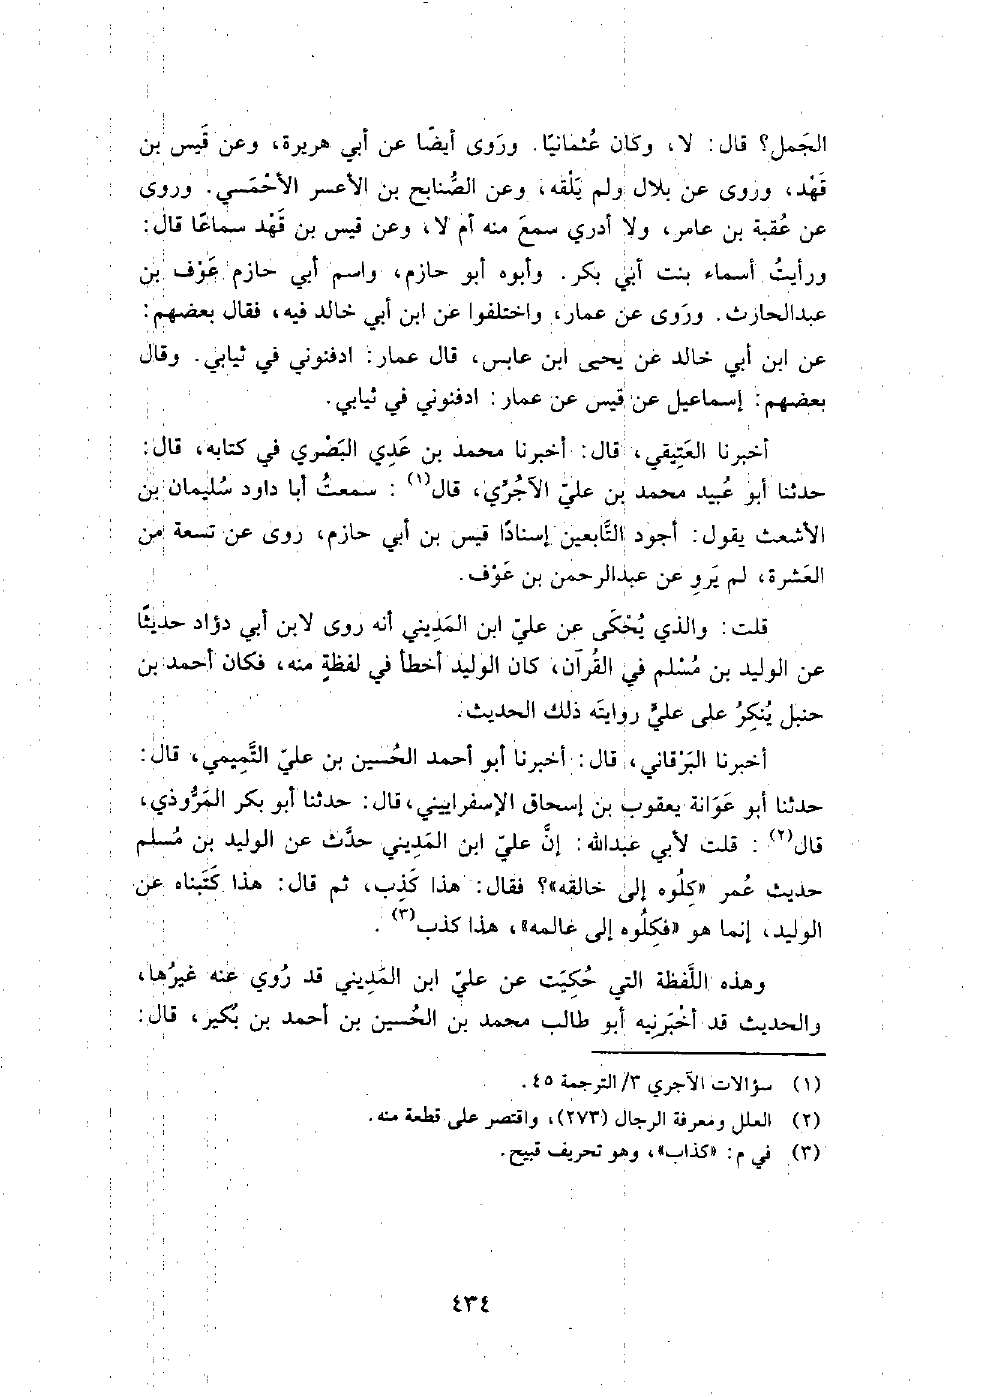 الجَمل؟ قال: لا، وكان عُثمانيًا. ورَوى أيضًا عن أبي هريرة، وعن قَيس بن
قَهْد، وروى عن بلال ولم يَلْقه، وعن الصُّنابح بن الأعسر الأحْمَسي. وروى
عن عُقبة بن عامر، ولا أدري سمعَ منه أم لا، وعن قيس بن قَهْد سماعًا قال:
ورأيتُ أسماء بنت أبي بكر. وأبوه أبو حازم، واسم أبي حازم عَوْف بن
عبدالحارث. ورَوى عن عمار، واختلفوا عن ابن أبي خالد فيه، فقال بعضهم:
عن ابن أبي خالد عن يحيى ابن عابس، قال عمار: ادفنوني في ثيابي. وقال
بعضهم: إسماعيل عن قيس عن عمار: ادفنوني في ثيابي.
أخبرنا العَتِيقي، قال: أخبرنا محمد بن عَدِي البَصْري في كتابه، قال:
حدثنا أبو عُبيد محمد بن عليّ الآجُرِّي، قال(١): سمعتُ أبا داود سُليمان بن
الأشعث يقول: أجود التَّابعين إسنادًا قيس بن أبي حازم، روى عن تسعة من
العَشرة، لم يَروِ عن عبدالرحمن بن عَوْف.
قلت: والذي يُحْكَى عن عليّ ابن المَدِيني أنه روى لابن أبي دؤاد حديثًا
عن الوليد بن مُسْلم في القُرآن، كان الوليد أخطأ في لفظةٍ منه، فكان أحمد بن
حنبل يُنكِرُ على عليٍّ روايتَه ذلك الحديث.
أخبرنا البَرْقاني، قال: أخبرنا أبو أحمد الحُسين بن عليّ التَّميمي، قال:
حدثنا أبو عَوَانة يعقوب بن إسحاق الإسفراييني، قال: حدثنا أبو بكر المَرُّوذي،
قال(٢): قلت لأبي عبدالله: إنَّ عليّ ابن المَدِيني حدَّث عن الوليد بن مُسلم
حديث عُمر «كِلُوه إلى خالقه»؟ فقال: هذا كَذِب، ثم قال: هذا كَتَبناه عن
الوليد، إنما هو «فكِلُوه إلى عالمه»، هذا كذب(٣).
وهذه اللَّفظة التي حُكِيَت عن عليّ ابن المَدِيني قد رُوي عنه غيرُها،
والحديث قد أخْبَرنِيه أبو طالب محمد بن الحُسين بن أحمد بن بُكير، قال:
(١) سؤالات الآجري ٣/ الترجمة ٤٥.
(٢) العلل ومعرفة الرجال (٢٧٣)، واقتصر على قطعة منه.
(٣) في م: «كذاب»، وهو تحريف قبيح.
٤٣٤